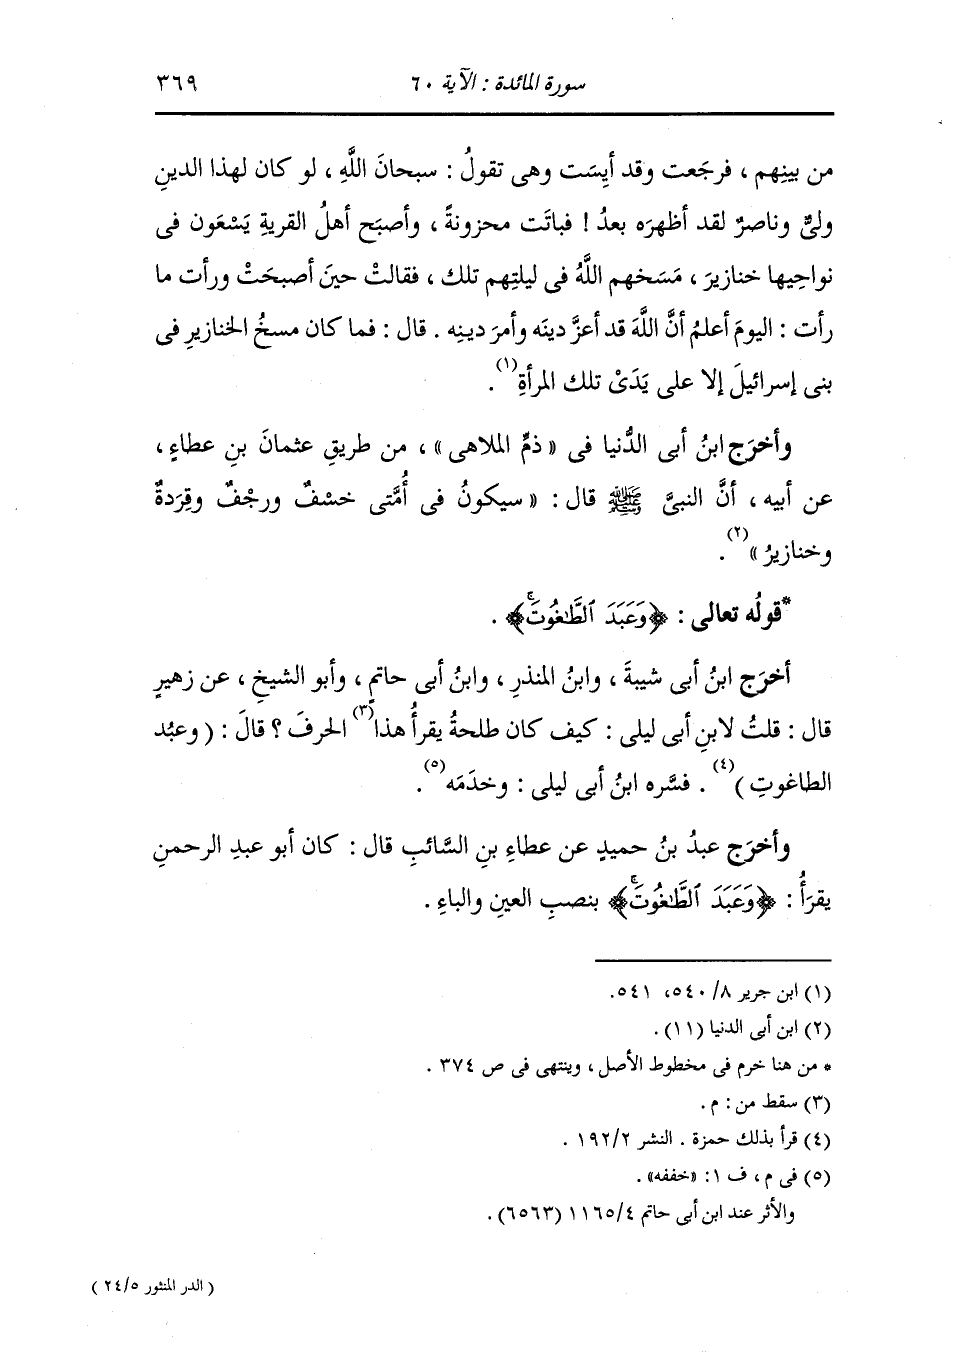 سورة المائدة : الآية ٦٠ ٣٦٩
من بينِهم ، فرجَعت وقد أيِسَت وهى تقولُ : سبحانَ اللَّهِ ، لو كان لهذا الدينِ
ولىٌّ وناصرٌ لقد أظهرَه بعدُ ! فباتَت محزونةً ، وأصبَح أهلُ القريةِ يَسْعَون فى
نواحِيها خنازيرَ ، مَسَخهم اللَّهُ فى ليلتِهم تلك ، فقالتْ حينَ أصبحَتْ ورأت ما
رأت : اليومَ أعلمُ أنَّ اللَّهَ قد أعزَّ دينَه وأمرَ دينِه . قال : فما كان مسخُ الخنازيرِ فى
بنى إسرائيلَ إلا على يَدَىْ تلك المرأةِ(١).
وأخرَج ابنُ أبى الدُّنيا فى « ذمِّ الملاهى » ، من طريقِ عثمانَ بنِ عطاءٍ ،
عن أبيه ، أنَّ النبىَّ ﷺ قال : « سيكونُ فى أُمَّتى خسْفٌ ورجْفٌ وقِرَدةٌ
وخنازيرُ »(٢) .
*قولُه تعالى : ﴿وَعَبَدَ ٱلطَّٰغُوتَۚ﴾ .
أخرَج ابنُ أبى شيبةَ ، وابنُ المنذرِ ، وابنُ أبى حاتمٍ ، وأبو الشيخِ ، عن زهيرٍ
قال : قلتُ لابنِ أبى ليلى : كيف كان طلحةُ يقرأُ هذا(٣) الحرفَ ؟ قالَ : ( وعبُد
الطاغوتِ )(٤) . فسَّره ابنُ أبى ليلى : وخدَمَه(٥) .
وأخرَج عبدُ بنُ حميدٍ عن عطاءِ بنِ السَّائبِ قال : كان أبو عبدِ الرحمنِ
يقرَأُ : ﴿وَعَبَدَ ٱلطَّٰغُوتَۚ﴾ بنصبِ العينِ والباءِ .
(١) ابن جرير ٨/ ٥٤٠، ٥٤١.
(٢) ابن أبى الدنيا (١١) .
* من هنا خرم فى مخطوط الأصل ، وينتهى فى ص ٣٧٤ .
(٣) سقط من : م .
(٤) قرأ بذلك حمزة . النشر ١٩٢/٢ .
(٥) فى م ، ف ١: «خففه» .
والأثر عند ابن أبى حاتم ١١٦٥/٤ (٦٥٦٣) .
( الدر المنثور ٢٤/٥ )